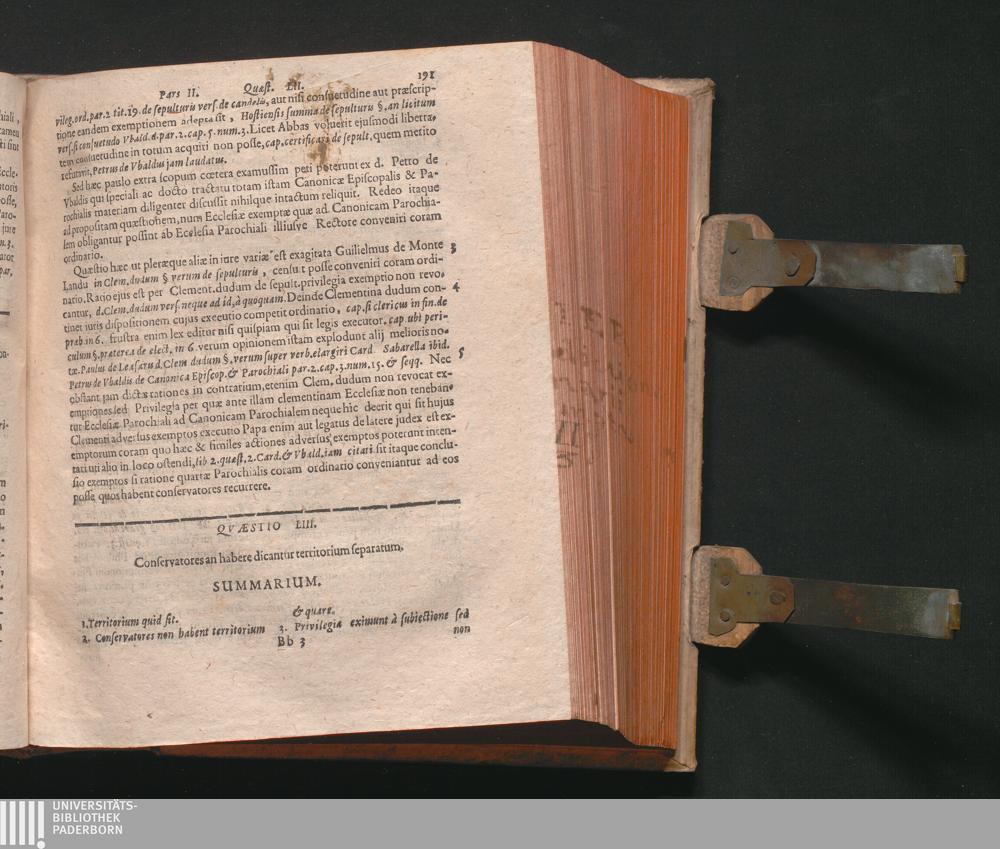 Pars II. Quæst. LII. 191
vileg.ord.par.2 tit.19.de sepulturis vers.de candelis, aut nisi consuetudine aut præscrip-
tione eandem exemptionem adepta sit, Hostiensis summa de sepulturis §.an licitum
vers.si consuetudo Vbald.d.par.2.cap.5.num.3. Licet Abbas voluerit ejusmodi liberta-
tem consuetudine in totum acquiri non posse, cap.certificari de sepult, quem merito
refutavit, Petrus de Vbaldus jam laudatus.
Sed hæc paulo extra scopum cœtera examussim peti poterunt ex d. Petro de
Vbaldis qui speciali ac docto tractatu totam istam Canonicæ Episcopalis & Pa-
rochialis materiam diligenter discussit nihilque intactum reliquit. Redeo itaque
ad propositam quæstionem, num Ecclesiæ exemptæ quæ ad Canonicam Parochia-
lem obligantur possint ab Ecclesia Parochiali illiusve Rectore conveniri coram
ordinario.
Quæstio hæc ut pleræque aliæ in iure variæ est exagitata Guilielmus de Monte 3
Landu in Clem.dudum § verum de sepulturis, censuit posse conveniri coram ordi-
nario. Ratio ejus est per Clement.dudum de sepult.privilegia exemptio non revo- 4
cantur, d.Clem.dudum vers.neque ad id, à quoquam. Deinde Clementina dudum con-
tinet iuris dispositionem cujus executio competit ordinario, cap.si clericus in fin.de
preb.in 6. frustra enim lex editur nisi quispiam qui sit legis executor. cap ubi peri-
culum §.præterea de elect, in 6 verum opinionem istam explodunt alij melioris no-
tæ. Paulus de Leasarus d.Clem dudum §.verum super verb.elargiri Card Sabarella ibid.
Petrus de Vbaldis de Canonica Episcop.& Parochiali par.2.cap.3.num.15.& seqq. Nec 5
obstant jam dictæ rationes in contrarium, etenim Clem. dudum non revocat ex-
emptiones sed Privilegia per quæ ante illam clementinam Ecclesiæ non teneban-
tur Ecclesiæ Parochiali ad Canonicam Parochialem neque hic deerit qui sit hujus
Clementi adversus exemptos executio Papa enim aut legatus de latere judex est ex-
emptorum coram quo hæc & similes actiones adversus exemptos poterunt inten-
tari uti alio in loco ostendi, lib 2.quæst.2.Card.& Vbald.iam citari sit itaque conclu-
sio exemptos si ratione quartæ Parochialis coram ordinario conveniantur ad eos
posse quos habent conservatores recurrere.
QVÆSTIO LIII.
Conservatores an habere dicantur territorium separatum,
SUMMARIUM.
1. Territorium quid sit.
2. Conservatores non habent territorium
& quare.
3. Privilegia eximunt à subjectione sed
Bb 3 non
UNIVERSITÄTS-
BIBLIOTHEK
PADERBORN